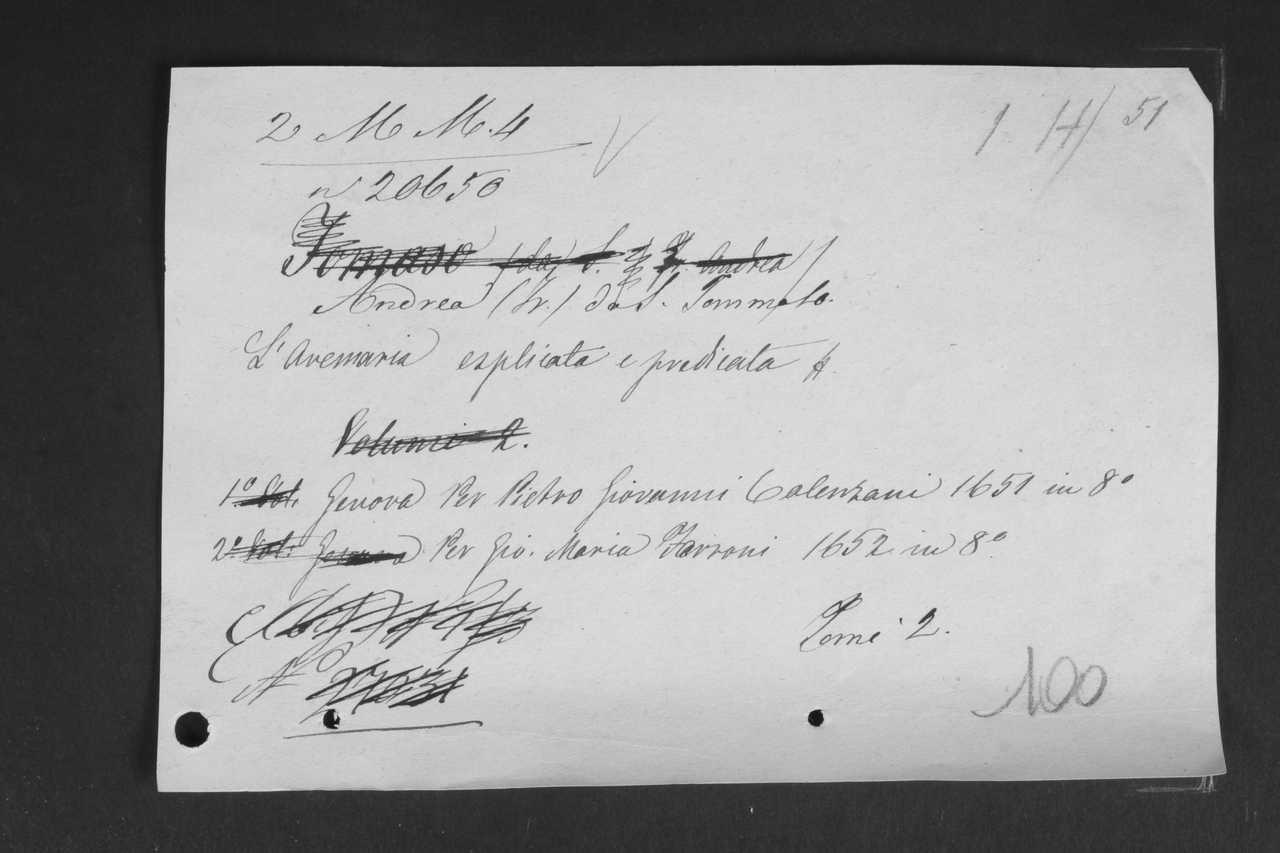 2 M M. 4
1 H) 51
n 20650
Tomaso (da) S. Fr. Andrea
Andrea (Fr.) da S. Tommaso.
L'Avemaria esplicata e predicata
Volumi 2.
1º Vol. Genova Per Pietro Giovanni Calenzani 1651 in 8º
2º Vol. Genova Per Gio. Maria Farroni 1652 in 8º
Tomi 2.
Nº
100